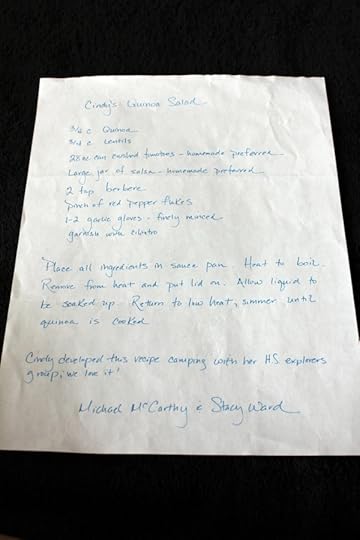 Cindy's Quinoa Salad
3/4 c Quinoa
3/4 c lentils
28 oz can crushed tomatoes - homemade preferred
Large jar of salsa - homemade preferred
2 tsp berbere
pinch of red pepper flakes
1-2 garlic gloves - finely minced
garnish with cilantro
Place all ingredients in sauce pan. Heat to boil.
Remove from heat and put lid on. Allow liquid to
be soaked up. Return to low heat, simmer until
quinoa is cooked
Cindy developed this recipe camping with her HS explorers
group; we love it!
Michael McCarthy & Stacy Ward